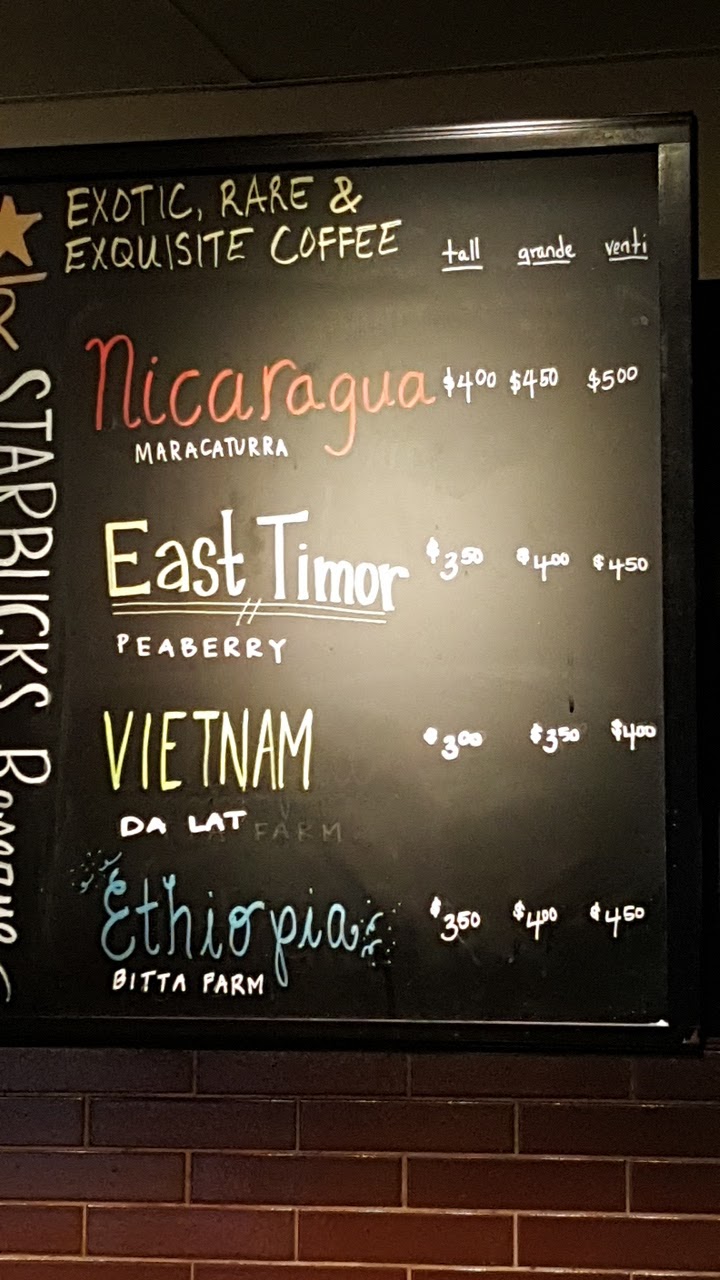 EXOTIC, RARE &
EXQUISITE COFFEE
tall grande venti
Nicaragua $400 $450 $500
MARACATURRA
East Timor $350 $400 $450
PEABERRY
VIETNAM $300 $350 $400
DA LAT FARM
Ethiopia $350 $400 $450
BITTA FARM
STARBUCKS